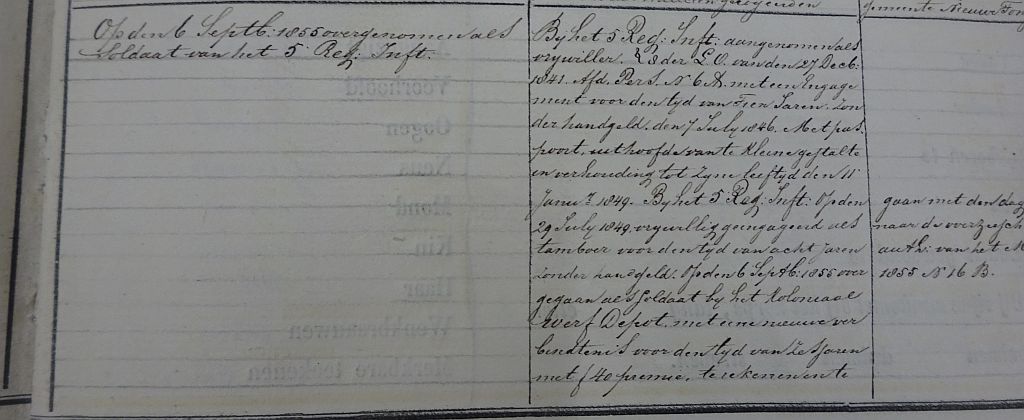 Gemeente Nieuwe
Op den 6 Septb: 1855 overgenomen als
Soldaat van het 5 Reg: Inft.
By het 5 Reg: Inft: aangenomen als
vrywilliger. der L.O. van den 27 Decb:
1841. Afd. Pers. N 6 A. met een Engage
ment voor den tyd van Tien Jaren. Zon
der handgeld. den 7 July 1846. Met pas
poort, uit hoofde van te kleine gestalte
in verhouding tot zyne leeftyd den 11
Janu 1849. By het 5 Reg: Inft: Op den
29 July 1849. vrywillig geengageerd als
tamboer voor den tyd van acht jaren
zonder handgeld. Op den 6 Septb: 1855 over
gegaan als Soldaat by het Koloniaal
Werf Depot. met eene nieuwe ver
bindtenis voor den tyd van Zes Jaren
met f 40 premie, te rekenen en te
gaan met den dag
naar de overzeesch
auth: van het M
1855 N 16 B.